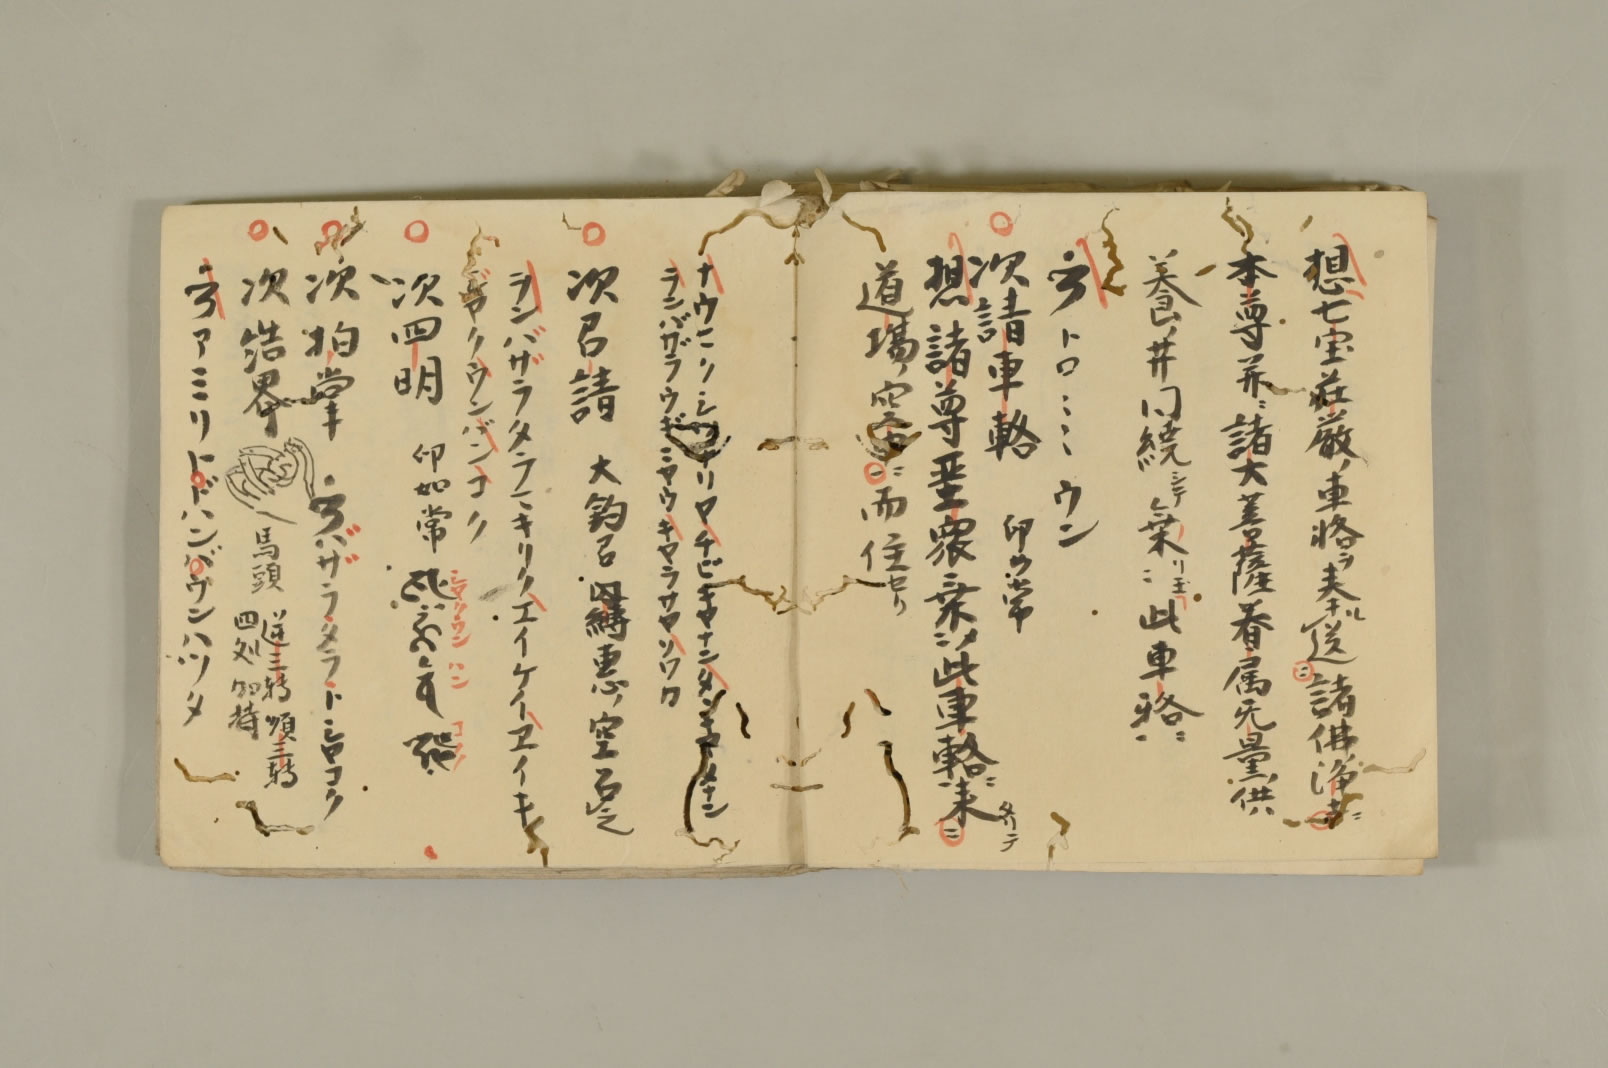 想七宝荘厳ノ車輅ヲ夫ナル送諸佛浄土ニ
本尊并ニ諸大菩薩眷属无量供
養𦬇囲繞シテ乗リ玉フ此車輅ニ
トロミミミウン
次請車輅 印如常
想諸尊聖衆乗シ此車輅ニ来リテ
道場ノ空中ニ而住セリ
ナウマクシッチリヤチビキャナンタンキャタナン
ランバザラウギニャウキャラサヤソワカ
次召請 大鈎召内縛恵ノ空召之
ランバザラタラマキリクエイケイエイキ
ジャクウンバンコク
次四明 印如常
ジャクウン バン コク
次拍掌 バザラタラトシャコク
次結界 馬頭 逆三轉 順三轉
四処加持
アミリトドハンバウンハツタ